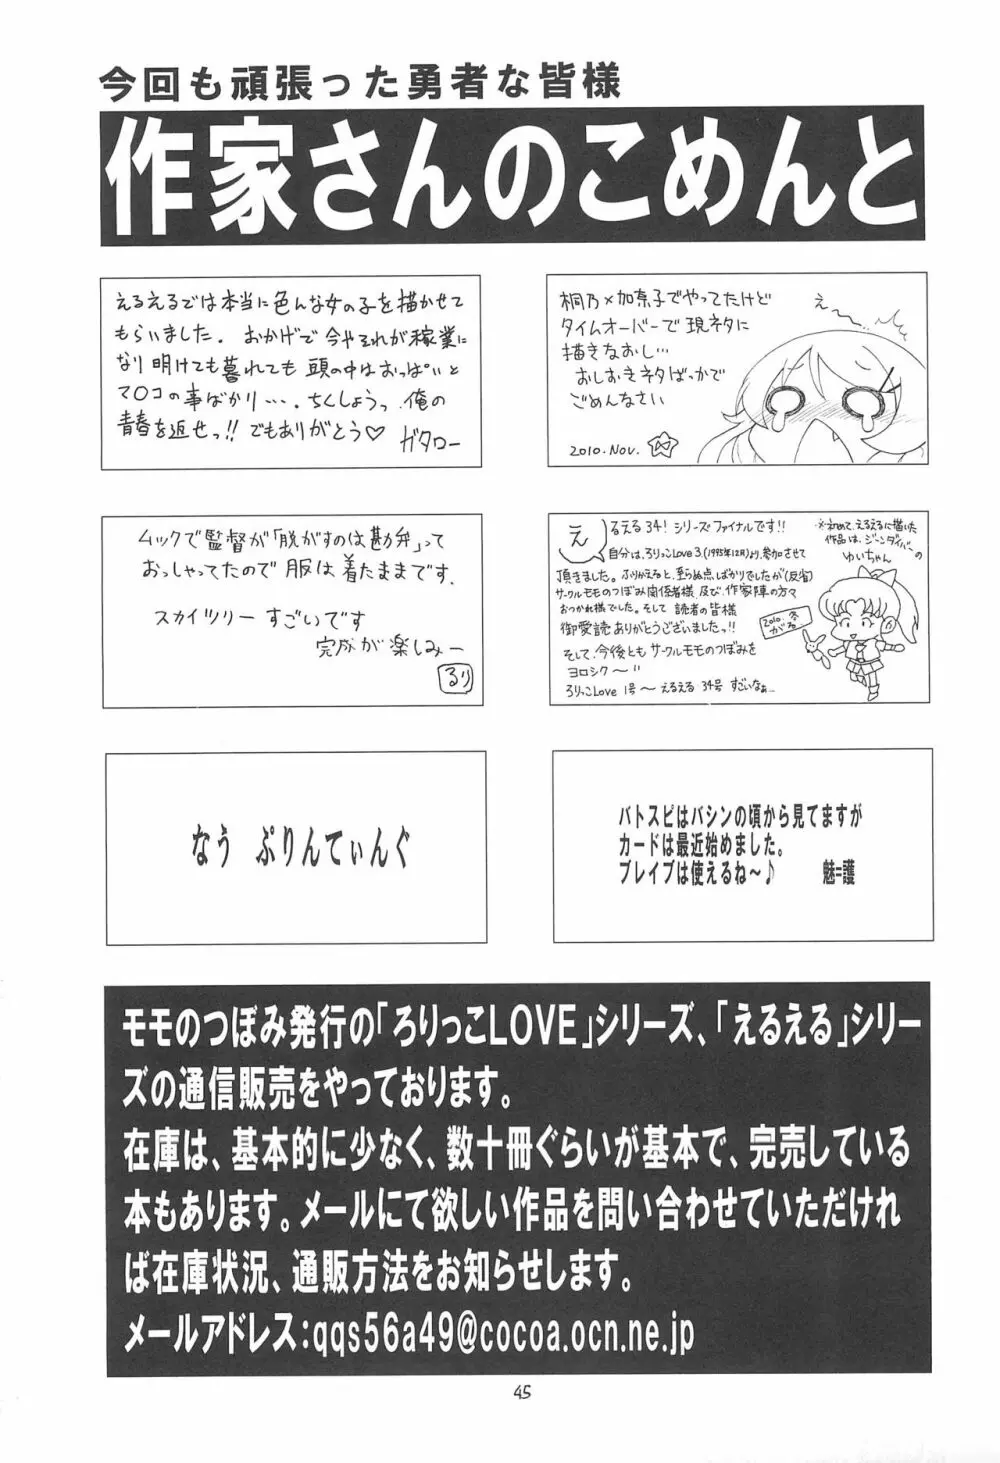 今回も頑張った勇者な皆様
作家さんのこめんと
えるえるでは本当に色んな女の子を描かせて
もらいました. おかげで今やそれが稼業に
なり明けても暮れても頭の中はおっぱいと
マ○コの事ばかり…. ちくしょうっ 俺の
青春を返せっ!! でもありがとう♡ ガタロー
桐乃×加奈子でやってたけど
タイムオーバーで現ネタに
描きなおし…
おしおきネタばっかで
ごめんなさい
2010.Nov.
え〜
ムックで監督が「脱がすのは勘弁」って
おっしゃってたので 服は着たままです.
スカイツリー すごいです
完成が楽しみー
るり
えるえる34! シリーズファイナルです!!
自分は、ろりっこLove3.(1995年12月)より、参加させて
頂きました。ふりかえると、至らぬ点ばかりでしたが(反省)
サークルモモのつぼみ関係者様、及び、作家陣の方々
おつかれ様でした。そして 読者の皆様
御愛読ありがとうございましたっ!!
そして、今後とも サークルモモのつぼみを
ヨロシク〜''
ろりっこLove 1号 〜 えるえる 34号 すごいなぁ…
※初めて、えるえるに描いた
作品は、ジーンダイバーの
ゆいちゃん
2010.冬
なう ぷりんてぃんぐ
バトスピはバシンの頃から見てますが
カードは最近始めました。
ブレイブは使えるね〜♪ 魅=護
モモのつぼみ発行の「ろりっこLOVE」シリーズ、「えるえる」シリー
ズの通信販売をやっております。
在庫は、基本的に少なく、数十冊ぐらいが基本で、完売している
本もあります。メールにて欲しい作品を問い合わせていただけれ
ば在庫状況、通販方法をお知らせします。
メールアドレス:qqs56a49@cocoa.ocn.ne.jp
45